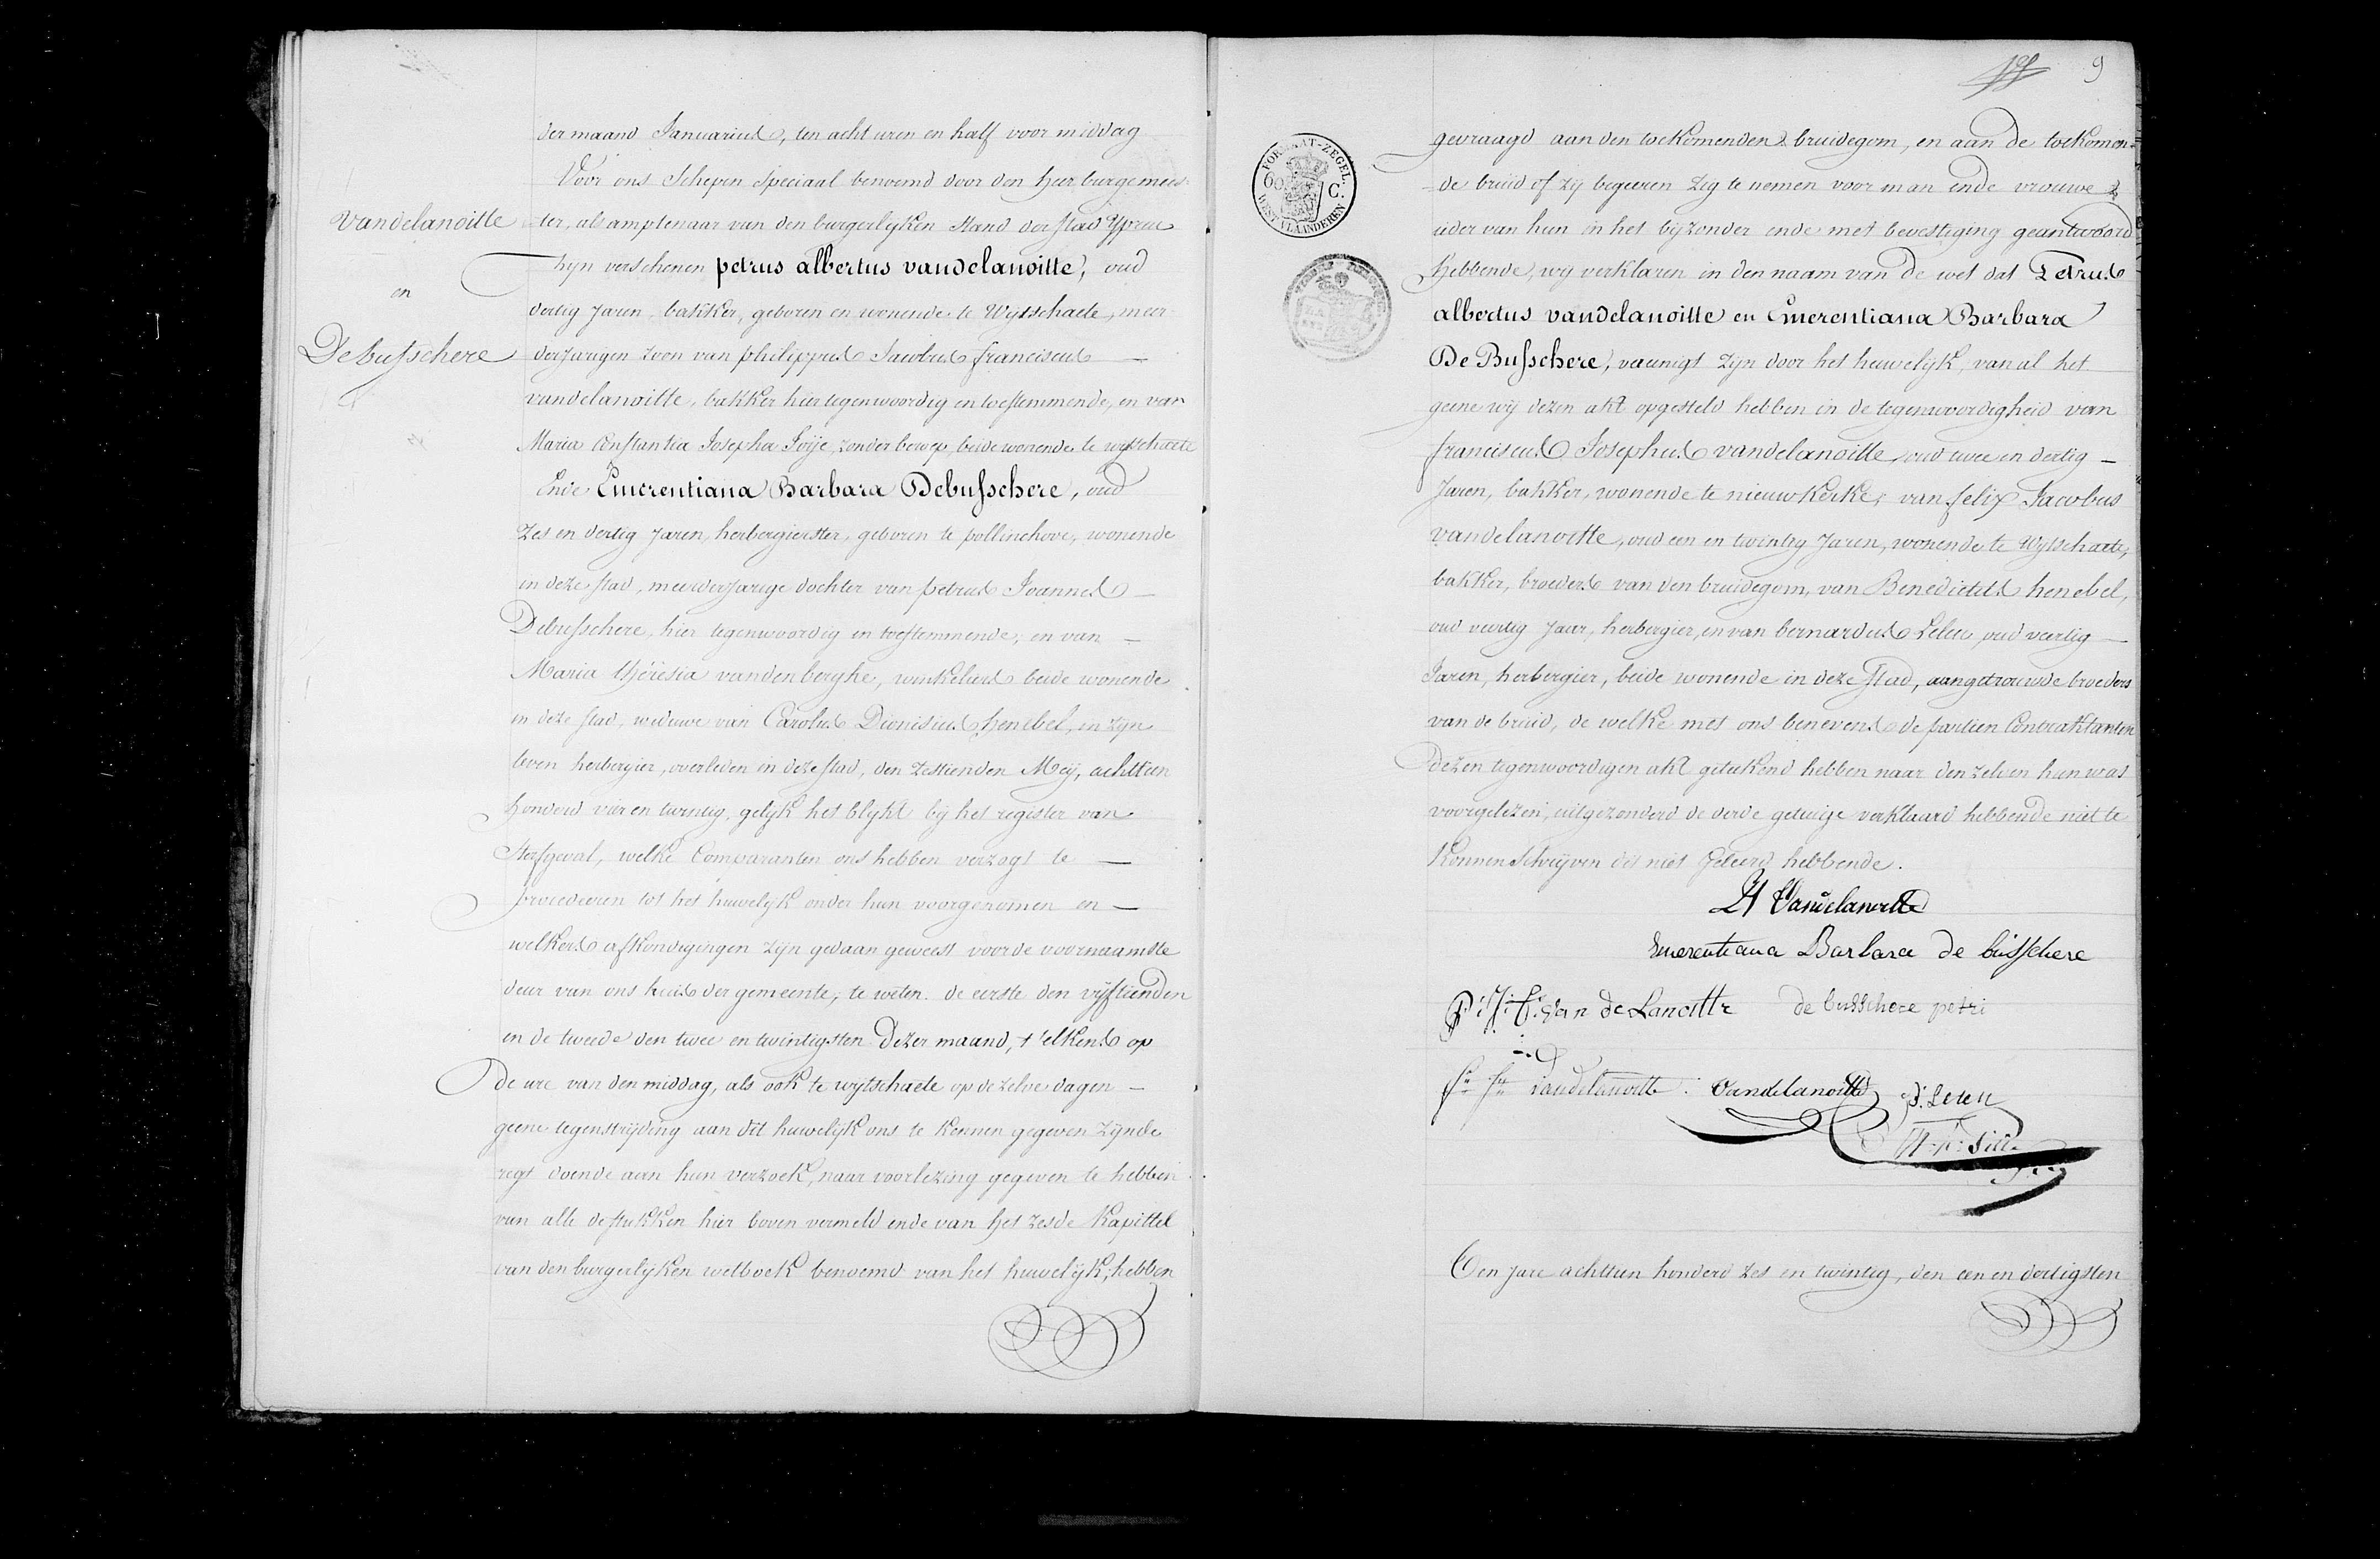 der maand Januarius, ten acht uren en half voor middag
Voor ons Schepen Speciaal benoemd door den heer burgemees-
ter, als amptenaar van den burgerlyken Stand der stad Ypren
Vandelanoitte
en
Debusschere
zyn verschenen petrus albertus vandelanoitte, oud
dertig Jaren, bakker, geboren en wonende te Wytschaete, meer-
derjarigen zoon van philippus Jacobus franciscus
vandelanoitte, bakker hier tegenwoordig en toestemmende, en van
Maria Constantia Josepha zonder beroep, beide wonende te wytschaete
Ende Emerentiana Barbara Debusschere, oud
zes en dertig Jaren, herbergierster, geboren te pollinchove, wonende
in deze stad, meerderjarige dochter van petrus Joannes
Debusschere, hier tegenwoordig en toestemmende, en van
Maria théresia vandenberghe, winkeliers beide wonende
in deze stad, weduwe van Carolus Dionisius henebel, in zyn
leven herbergier, overleden in deze stad, den zestienden Meÿ, achttien
honderd vier en twintig, gelyk het blykt by het register van
Sterfgeval, welke Comparanten ons hebben verzogt te
procederen tot het huwelyk onder hun voorgenomen en
welkers afkondigingen zyn gedaan geweest voor de voornaamste
deur van ons huis der gemeente, te weten. de eerste den vyftienden
en de tweede den twee en twintigsten Dezer maand, t'elkens op
de ure van den middag, als ook te wytschaete op de zelve dagen
geene tegenstryding aan dit huwelyk ons te kennen gegeven zynde
regt doende aan hun verzoek, naar voorlezing gegeven te hebben
van alle de stukken hier boven vermeld ende van het zesde Kapittel
van den burgerlyken wetboek benoemd van het huwelyk, hebben
9
FORMAAT-ZEGEL.
60 C.
WEST VLAANDEREN
gevraagd aan den toekomenden bruidegom, en aan de toekomen-
de bruid of zy begeeren zig te nemen voor man ende vrouwe
ider van hun in het byzonder ende met bevestiging geantwoord
hebbende, wy verklaren in den naam van de wet dat Petrus
albertus vandelanoitte en Emerentiana Barbara
De Busschere, vereenigt zyn door het huwelyk, van al het
geene wy dezen akt opgesteld hebben in de tegenwoordigheid van
franciscus Josephus vandelanoitte, oud twee en dertig
Jaren, bakker, wonende te nieuwkerke, van felix Jacobus
vandelanoitte, oud een en twintig Jaren, wonende te Wytschaete,
bakker, broeders van den bruidegom, van Benedictus henebel,
oud veertig Jaar, herbergier, en van bernardus Leleu oud veertig
Jaren, herbergier, beide wonende in deze Stad, aangetrouwde broeders
van de bruid, de welke met ons benevens de partien Contraktanten
dezen tegenwoordigen akt geteekend hebben naar den zelven hun was
voorgelezen, uitgezonderd de derde getuige verklaard hebbende niet te
konnen Schryven dit niet geleerd hebbende.
PA Vandelanoitte
Emerentiana Barbara de busschere
P. J. F. Van de Lanoitte de busschere petri
fr. vandelanoitte. Vandelanoitte
Ten Jare achttien honderd zes en twintig, den een en dertigsten